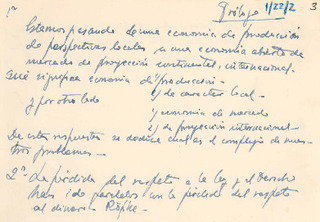 1º
Prólogo
1/22/2 3
Estamos pasando de una economia de producción
de perspectivas locales a una economia abierta de
mercado de proyección continental, internacional.
Qué significa economia de producción -
1) de caracter local -
y por otro lado
1) economia de mercado
2) de proyección internacional -
De estas respuestas se deduce cual es el complejo de nues-
tros problemas -
2º - La pérdida del respeto a la ley y el derecho
han ido paralelos con la pérdida del respeto
al dinero - Röpke -